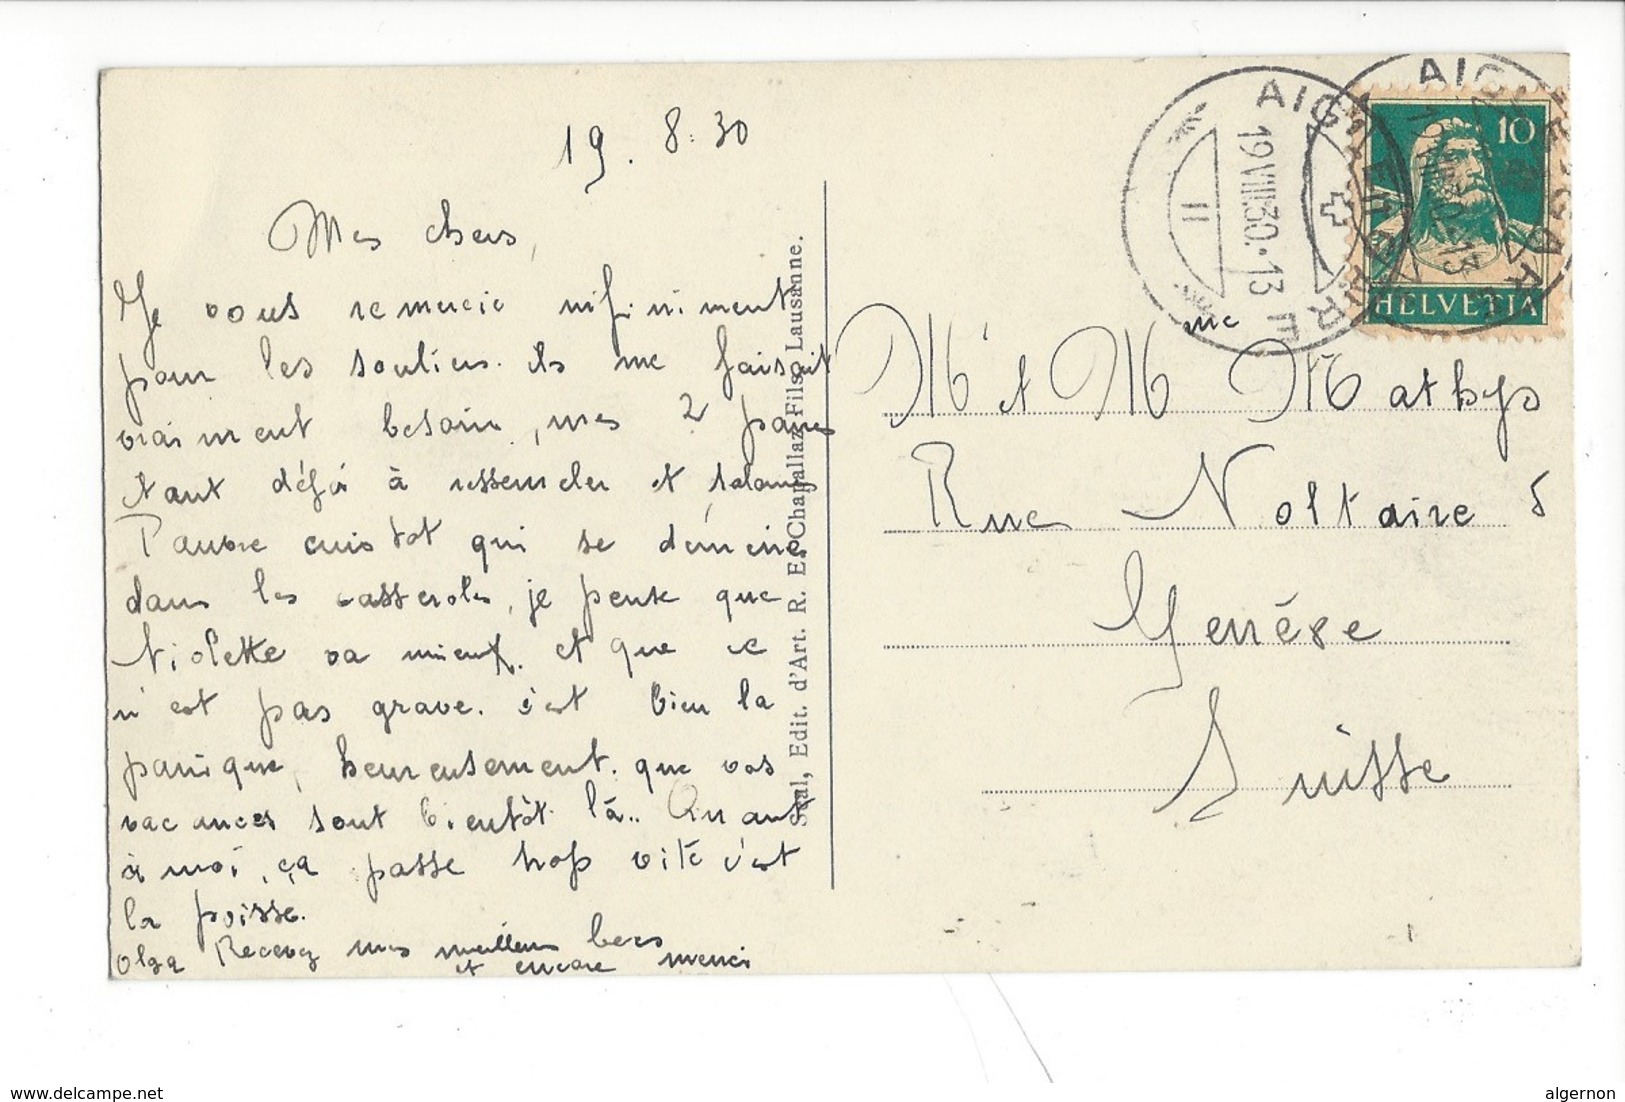 19. 8. 30
Mes chers,
Je vous remercie infiniment
pour les souliers. ils me faisait
vraiment besoin, mes 2 paires
tant déjà à ressemeler et
Pauvre cuistot qui se démène
dans les casseroles, je pense que
Violette va mieux. et que ce
n'est pas grave. c'est bien la
panique, heureusement. que vos
vacances sont bientôt là.. Quant
à moi, ça passe hop vite c'est
la poisse.
Olga Recevez mes meilleurs becs
et encore merci
Édit. d'Art. R. E. Chapallaz Fils, Lausanne.
AIGLE GARE
19.VIII.30.-13
II
AIGLE GARE
10
HELVETIA
Mr et Mme Mathys
Rue Voltaire 5
Genève
Suisse
www.delcampe.net
algernon